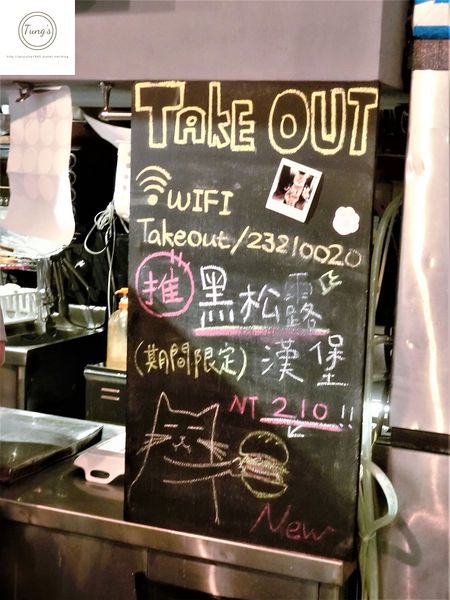 Tung's
TAKE OUT
WIFI
Takeout/23210020
推 黑松露
(期間限定) 漢堡
NT 210!!
New